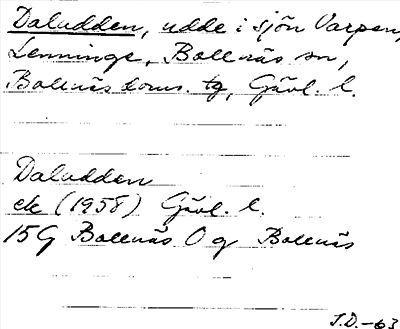 Daludden, udde i sjön Varpen,
Lenninge, Bollnäs sn,
Bollnäs doms. tg, Gävl. l.
Daludden
ek (1958) Gävl. l.
15G Bollnäs O g Bollnäs
J.D.-63